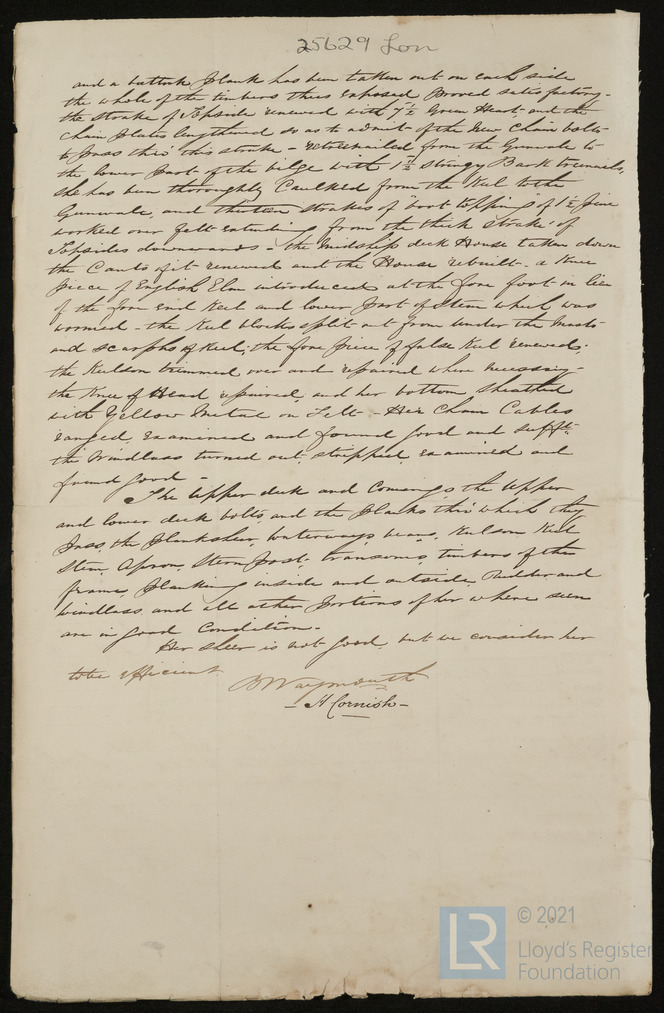 25629 Lon
and a buttock plank has been taken out on each side
the whole of the timbers thus exposed proved satisfactory -
the strake of Topside renewed with 7½ Green Heart, and the
chain plates lengthened so as to admit of the New Chain bolts
to pass thro' this strake - retreenailed from the Gunwale to
the lower part of the bilge with 1½ Stringy Bark treenails,
She has been thoroughly Caulked from the Keel to the
Gunwale, and thirteen strakes of topping of 1½ pine
worked over felt extending from the thick strake of
Topsides downwards - the midship deck House taken down
the Cants of it renewed and the House rebuilt - a Knee
piece of English Elm introduced at the fore foot in lieu
of the fore end Keel and lower part of stem which was
wormed - the Keel blocks split out from under the Masts
and scarphs of Keel; the fore piece of false Keel renewed;
the Keelson trimmed over and repaired where necessary -
the Knee of Head repaired, and her bottom sheathed
with Yellow Metal on Felt - Her Chain Cables
ranged, examined and found good and sufft.
the Windlass turned out, stripped, examined and
found good -
The Upper deck and Comings, the Upper
and lower deck bolts, and the planks thro' which they
pass, the planksheer, waterways, beams, Keelson Keel
Stem, Apron, Stern post, transoms, timbers of the
frame, planking inside and outside, Rudder and
windlass and all other portions of her where seen
are in good Condition -
Her sheer is not good, but we consider her
to be efficient
B Waymouth
- H Cornish -
LR
© 2021
Lloyd's Register
Foundation